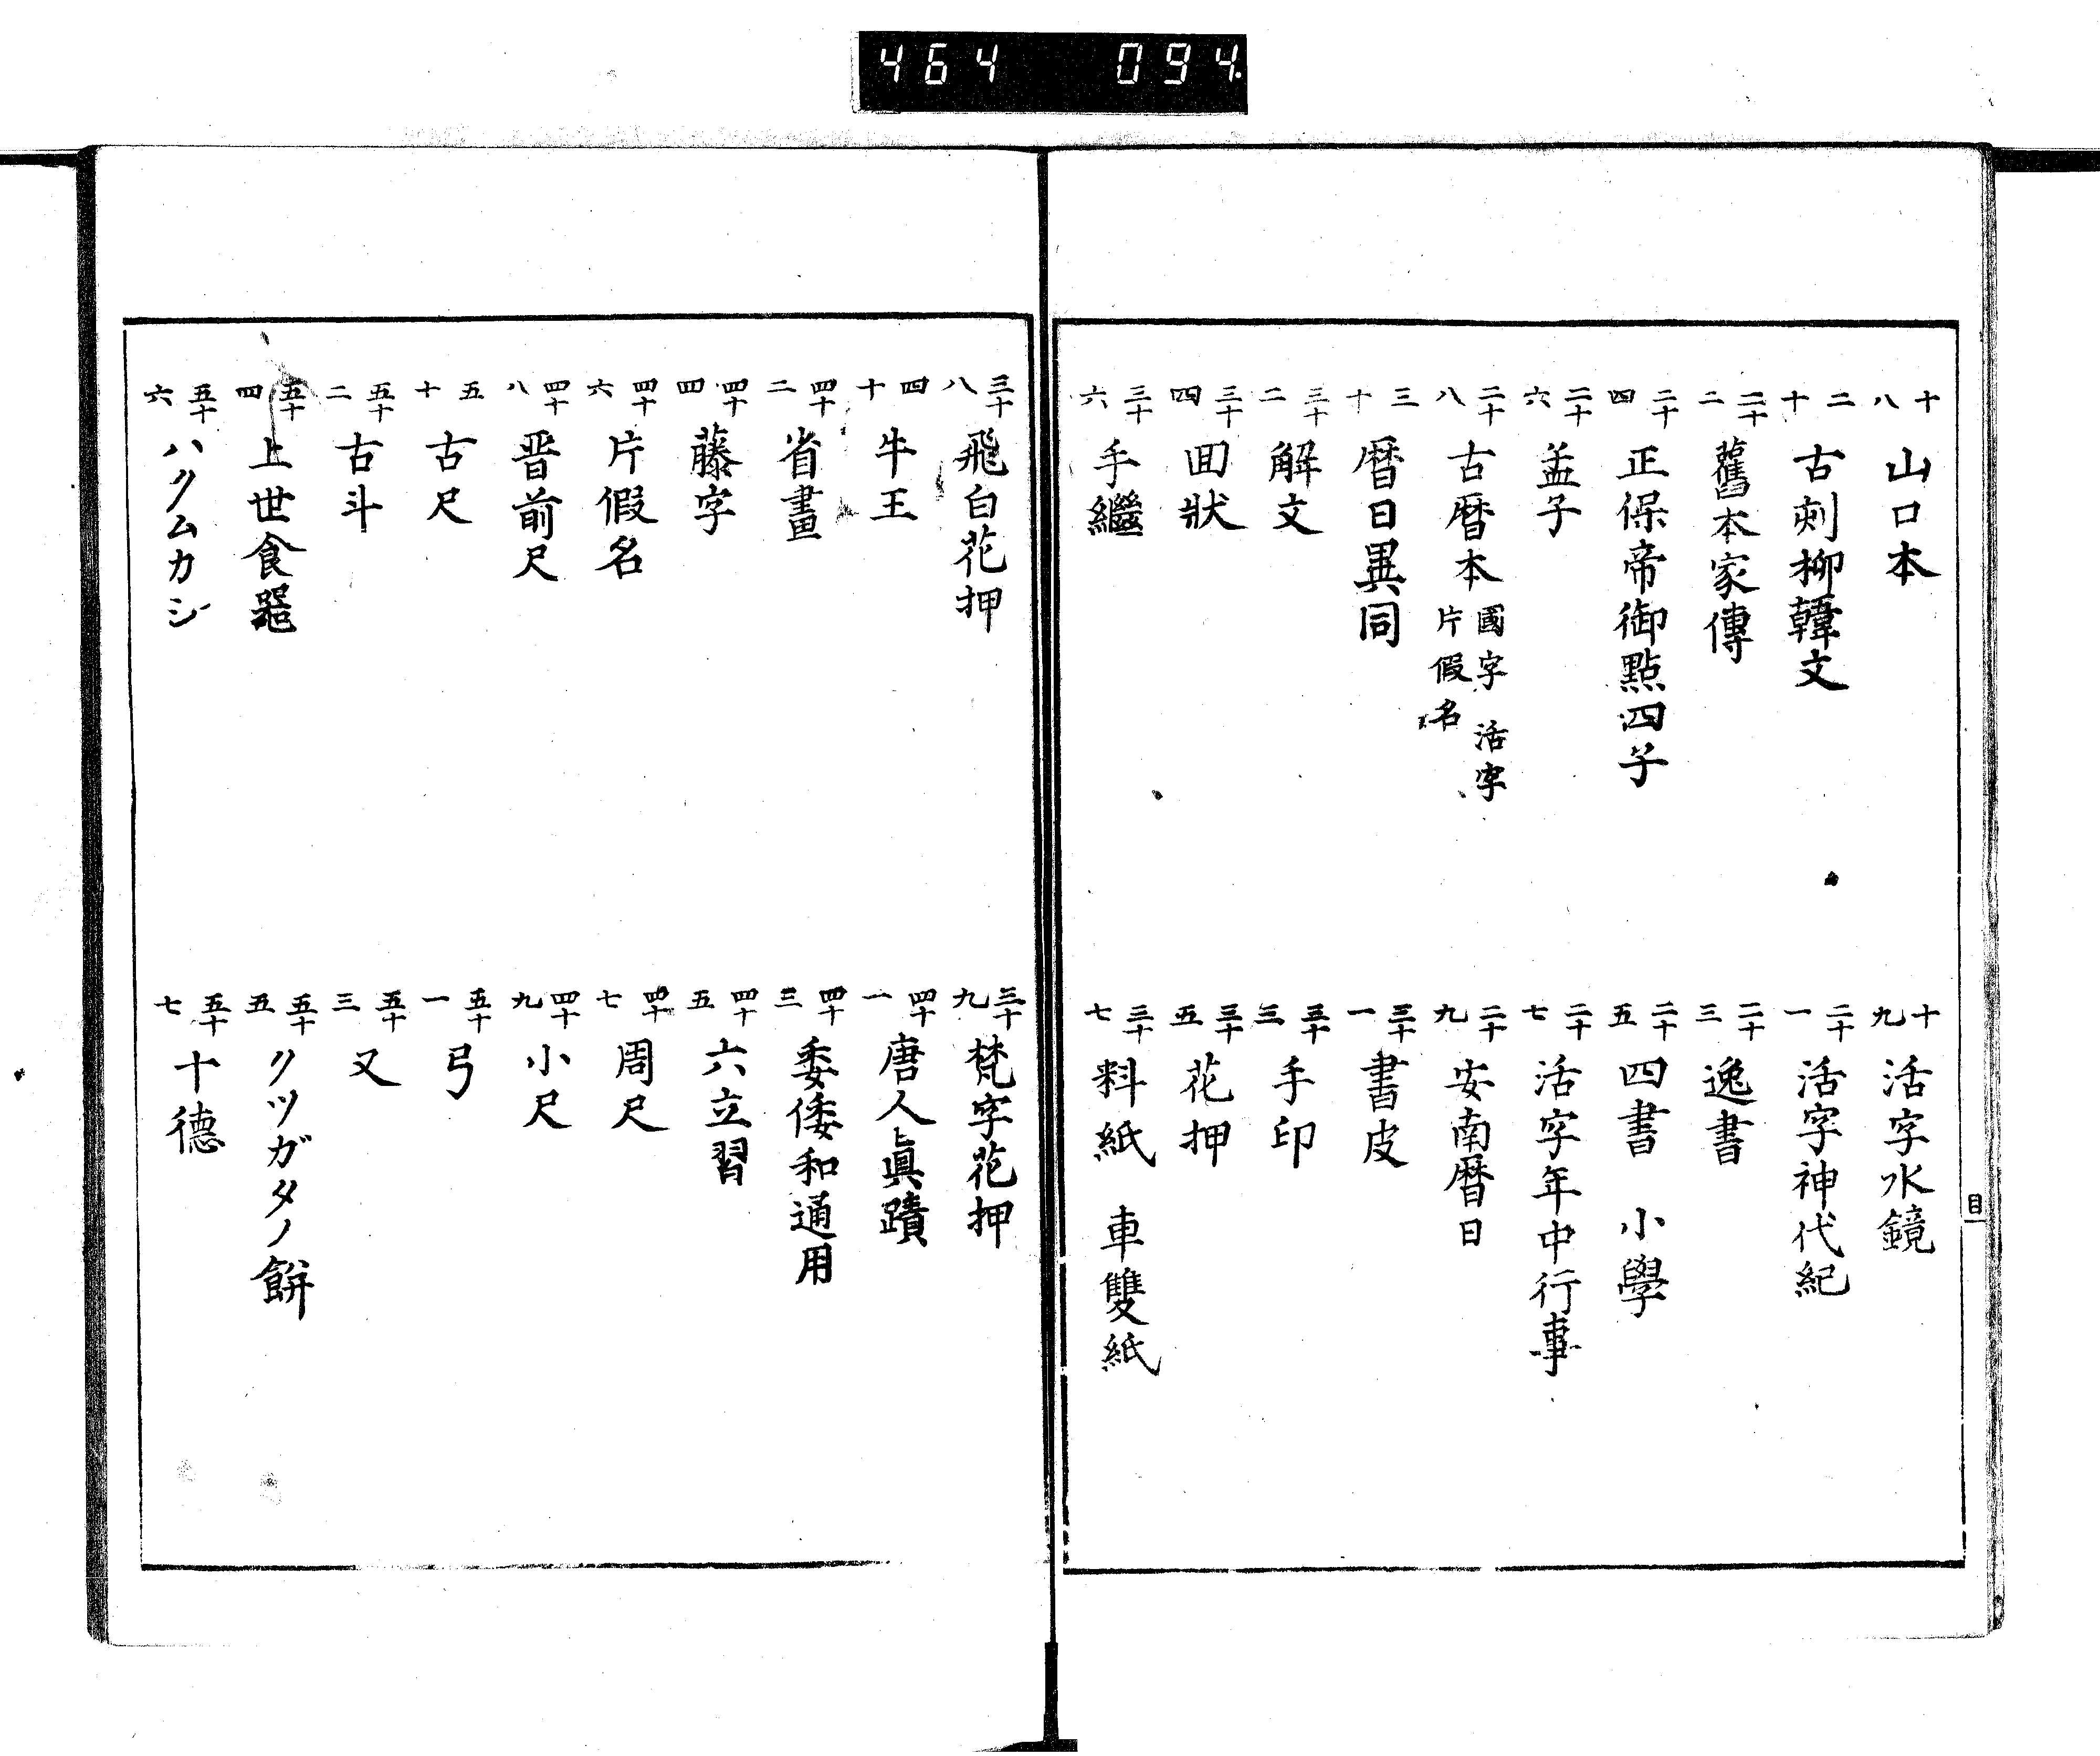 464 094.
十八 山口本
十九 活字水鏡
二十 古刻柳韓文
二十一 活字神代紀
二十二 舊本家傳
二十三 逸書
二十四 正保帝御點四子
二十五 四書 小學
二十六 孟子
二十七 活字年中行事
二十八 古暦本 國字 活字 片假名
二十九 安南暦日
三十 暦日異同
三十一 書皮
三十二 解文
三十三 手印
三十四 囬狀
三十五 花押
三十六 手繼
三十七 料紙 車雙紙
目一
三十八 飛白花押
三十九 梵字花押
四十 牛王
四十一 唐人眞蹟
四十二 省畫
四十三 委倭和通用
四十四 藤字
四十五 六立習
四十六 片假名
四十七 周尺
四十八 晋前尺
四十九 小尺
五十 古尺
五十一 弓
五十二 古斗
五十三 又
五十四 上世食噐
五十五 クツガタノ餅
五十六 ハクムカシ
五十七 十德